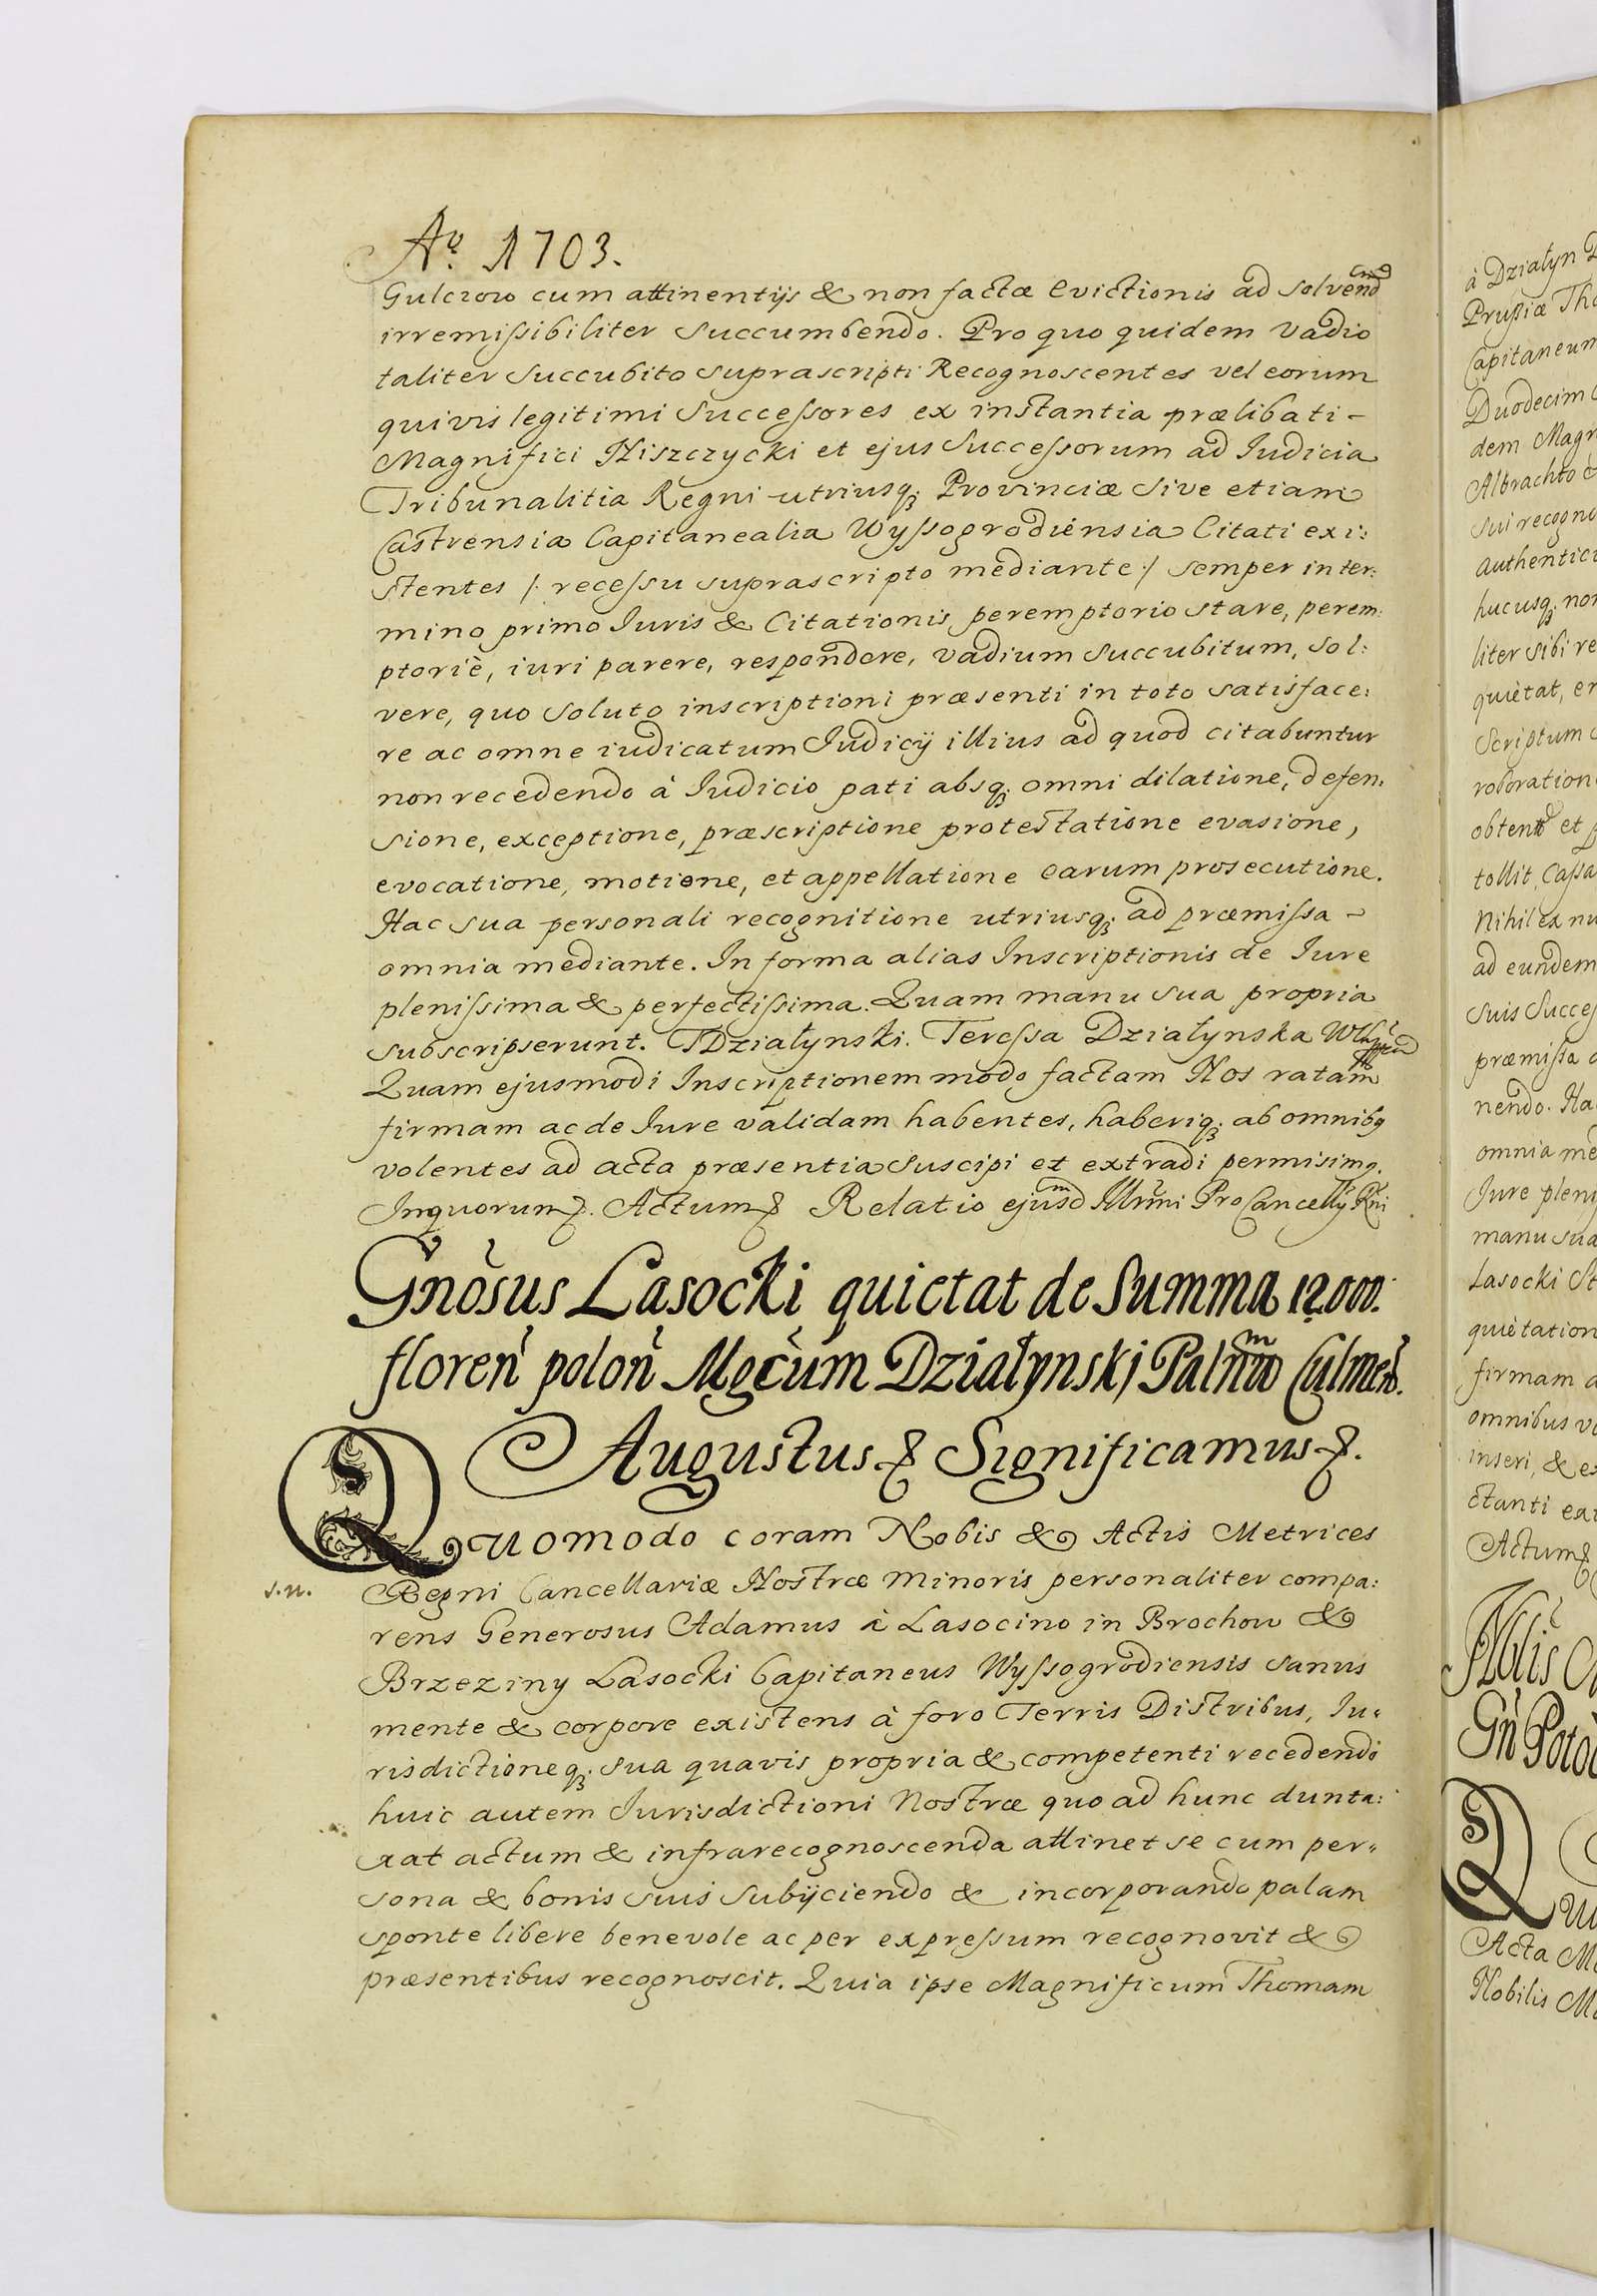 Aº. 1703.
Gulczow cum attinentijs & non factæ Evictionis ad solvend
irremissibiliter succumbendo. Pro quo quidem vadio
taliter succubito suprascripti Recognoscentes vel eorum
quivis legitimi Successores ex instantia prælibati-
Magnifici Niszczycki et ejus Successorum ad Iudicia
Tribunalitia Regni utriusq; Provinciæ sive etiam
Castrensia Capitanealia Wyssogrodiensia Citati exi:
stentes /: recessu suprascripto mediante :/ semper inter:
mino primo Iuris & Citationis peremptorio stare, perem:
ptoriè, iuri parere, respondere, vadium succubitum, sol:
vere, quo soluto inscriptioni præsenti in toto satisface:
re ac omne iudicatum Iudicij illius ad quod citabuntur
non recedendo à Iudicio pati absq; omni dilatione, defen:
sione, exceptione, præscriptione protestatione evasione,
evocatione, motione, et appellatione earum prosecutione.
Hac sua personali recognitione utriusq; ad præmissa-
omnia mediante. In forma alias Inscriptionis de Iure
plenissima & perfectissima. Quam manu sua propria
subscripserunt. TDziałynski. Teressa Działynska
Quam ejusmodi Inscriptionem modo factam Nos ratam
firmam ac de Iure validam habentes, haberiq; ab omnibq
volentes ad acta præsentia suscipi et extradi permisimq.
Inquorum &. Actum & Relatio ejusdm Illrmi ProCancellÿ Rni
Gnosus Lasocki quietat de Summa 12000.
floren polon Mgcum Działynskj Palnum Culmen.
Augustus & Significamus &.
Quomodo coram Nobis & Actis Metrices
s.n.
Regni Cancellariæ Nostræ Minoris personaliter compa:
rens Generosus Adamus à Lasocino in Brochow &
Brzeziny Lasocki Capitaneus Wyssogrodiensis sanus
mente & corpore existens à foro Terris Districtibus, Iu:
risdictioneq; sua quavis propria & competenti recedendo
huic autem Iurisdictioni Nostræ quo ad hunc dunta:
xat actum & infrarecognoscenda attinet se cum per:
sona & bonis suis subijciendo & incorporando palam
sponte libere benevole ac per expressum recognovit &
præsentibus recognoscit. Quia ipse Magnificum Thomam
à Działyn
Prussiæ Tho
Capitaneum
Duodecim
dem Magn
Albrachto
sui recogno
authentic
hucusq; non
liter sibi re
quietat, e
Scriptum
roboration
obtent et
tollit, Cassa
Nihil ex nu
ad eundem
suis Succes
præmissa
nendo. Ha
omnia me
Iure plen
manu sua
Lasocki St
quietation
firmam a
omnibus vo
inseri, & ex
ctanti ea
Actum &
Nblis
Gn Poto
Qu
Acta M
Nobilis M